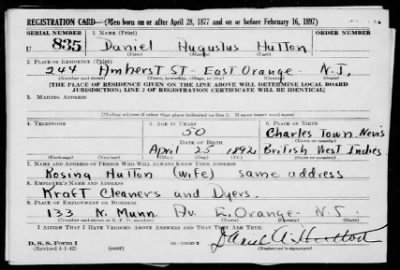 REGISTRATION CARD—(Men born on or after April 28, 1877 and on or before February 16, 1897)
SERIAL NUMBER 1. NAME (Print) ORDER NUMBER
U 835 Daniel Augustus Hutton
2. PLACE OF RESIDENCE (Print)
244 Amherst St - East Orange - N.J.
(Number and street) (Town, township, village, or city) (County) (State)
[THE PLACE OF RESIDENCE GIVEN ON THE LINE ABOVE WILL DETERMINE LOCAL BOARD
JURISDICTION; LINE 2 OF REGISTRATION CERTIFICATE WILL BE IDENTICAL]
3. MAILING ADDRESS
4. TELEPHONE 5. AGE IN YEARS 6. PLACE OF BIRTH
50 Charles Town, Nevis
DATE OF BIRTH
April 25 1892 British West Indies
(Exchange) (Number) (Mo.) (Day) (Yr.) (State or country)
7. NAME AND ADDRESS OF PERSON WHO WILL ALWAYS KNOW YOUR ADDRESS
Rosina Hutton (wife) same address
8. EMPLOYER'S NAME AND ADDRESS
Kraft Cleaners and Dyers.
9. PLACE OF EMPLOYMENT OR BUSINESS
133 N. Munn. Av. E. Orange - N.J.
(Number and street or R. F. D. number) (Town) (County) (State)
I AFFIRM THAT I HAVE VERIFIED ABOVE ANSWERS AND THAT THEY ARE TRUE.
D. S. S. Form 1
(Revised 4-1-42) (over)
Daniel A. Hutton